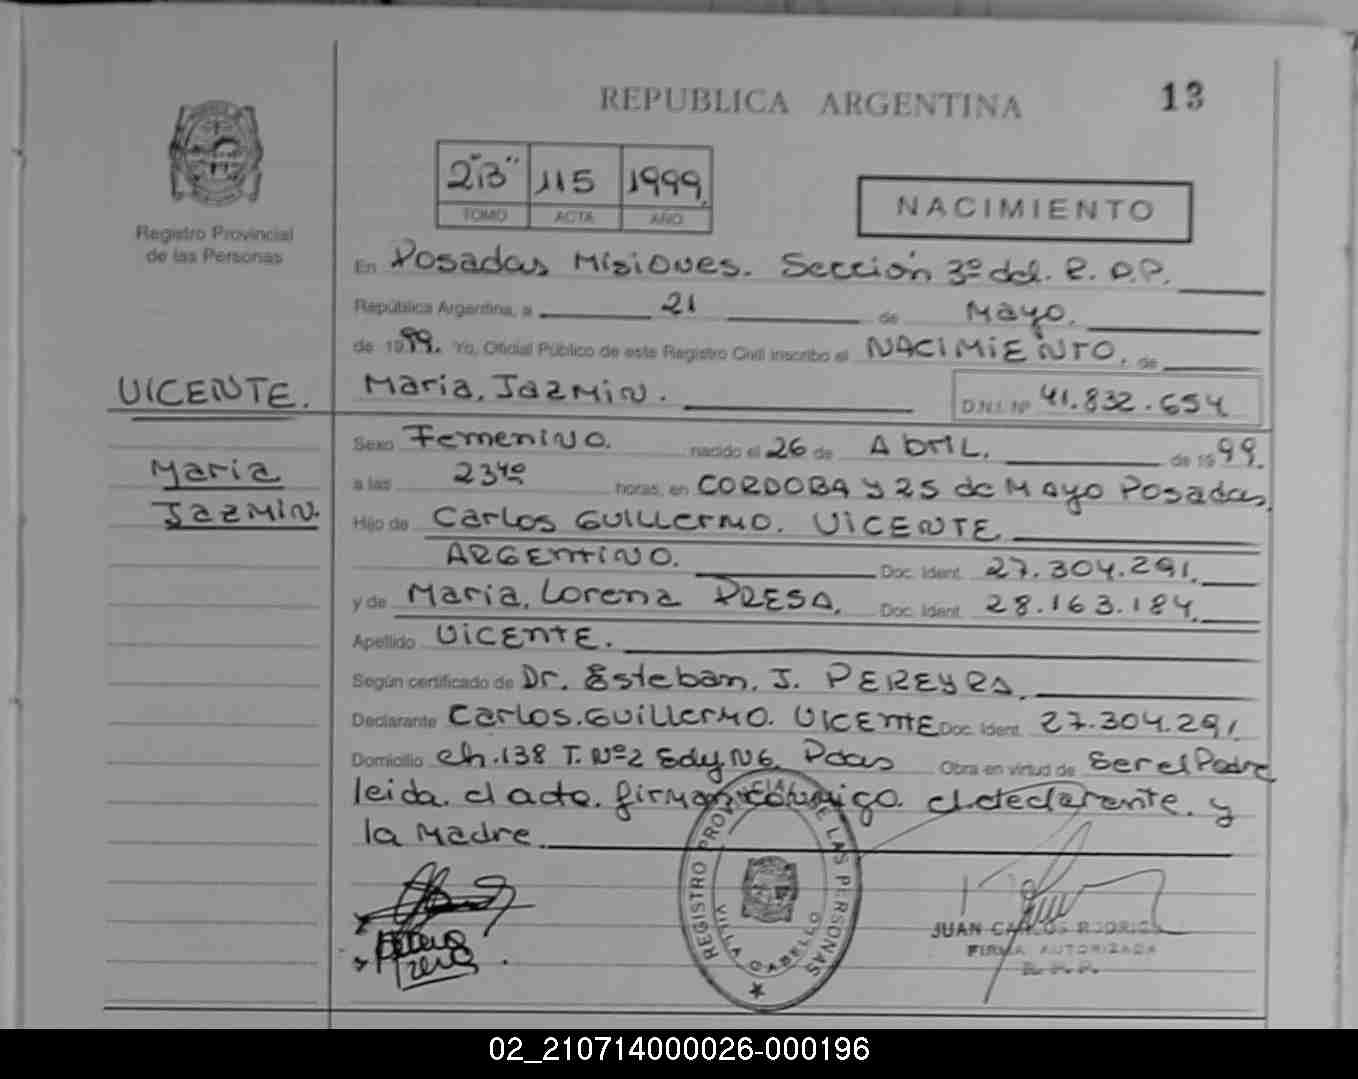 REPUBLICA ARGENTINA
13
2"B" 115 1999
TOMO ACTA AÑO
NACIMIENTO
Registro Provincial
de las Personas
En Posadas Misiones. Sección 3º del. R. P.P.
República Argentina, a 21 de Mayo.
de 1999. Yo, Oficial Público de este Registro Civil inscribo el NACIMIENTO. de
VICENTE.
Maria, Jazmin.
D.N.I. Nº 41.832.654
Sexo Femenino. nacido el 26 de Abril. de 1999.
Maria
Jazmin.
a las 23⁴⁰ horas, en CORDOBA y 25 de Mayo Posadas,
Hijo de Carlos Guillermo. VICENTE
ARGENTINO. Doc. Ident. 27.304.291.
y de Maria, Lorena PRESA. Doc. Ident. 28.163.184.
Apellido VICENTE.
Según certificado de Dr. Esteban. J. PEREYRA.
Declarante Carlos. Guillermo. VICENTE Doc. Ident. 27.304.291
Domicilio ch.138 T. Nº2 Edf N6. Pdas Obra en virtud de Ser el Padre
leida. el acta. firman conmigo. el declarante. y
la Madre.
REGISTRO PROVINCIAL DE LAS PERSONAS
VILLA CABELLO
JUAN CARLOS
FIRMA AUTORIZADA
R. P. P.
02_210714000026-000196